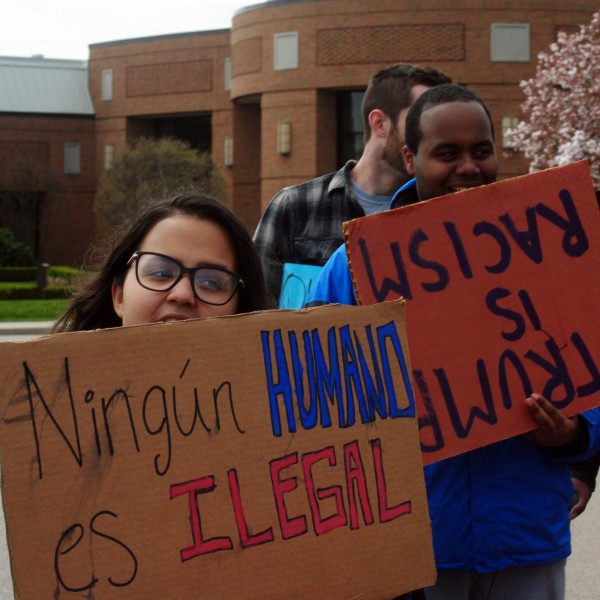 Ningún HUMANO
es ILEGAL
TRUMP
IS
RACISM